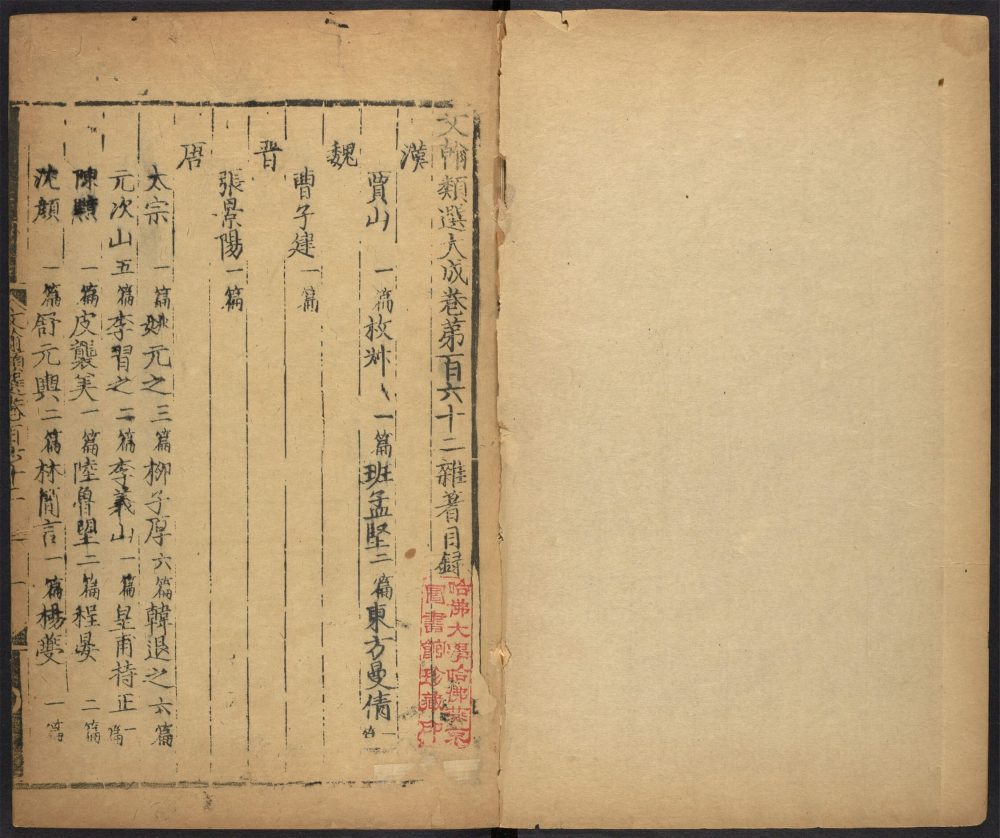 文翰類選大成卷第百六十二雜著目録
漢
賈山 一篇 枚叔 一篇 班孟堅 二篇 東方曼倩 一篇
魏
曹子建 一篇
晉
張景陽 一篇
唐
太宗 一篇 姚元之 三篇 柳子厚 六篇 韓退之 六篇
元次山 五篇 李習之 二篇 李義山 一篇 皇甫持正 一篇
陳黯 一篇 皮襲美 一篇 陸魯望 二篇 程晏 二篇
沈顔 一篇 舒元輿 二篇 林簡言 一篇 楊夔 一篇
哈佛大學哈佛燕京
圖書館珍藏印